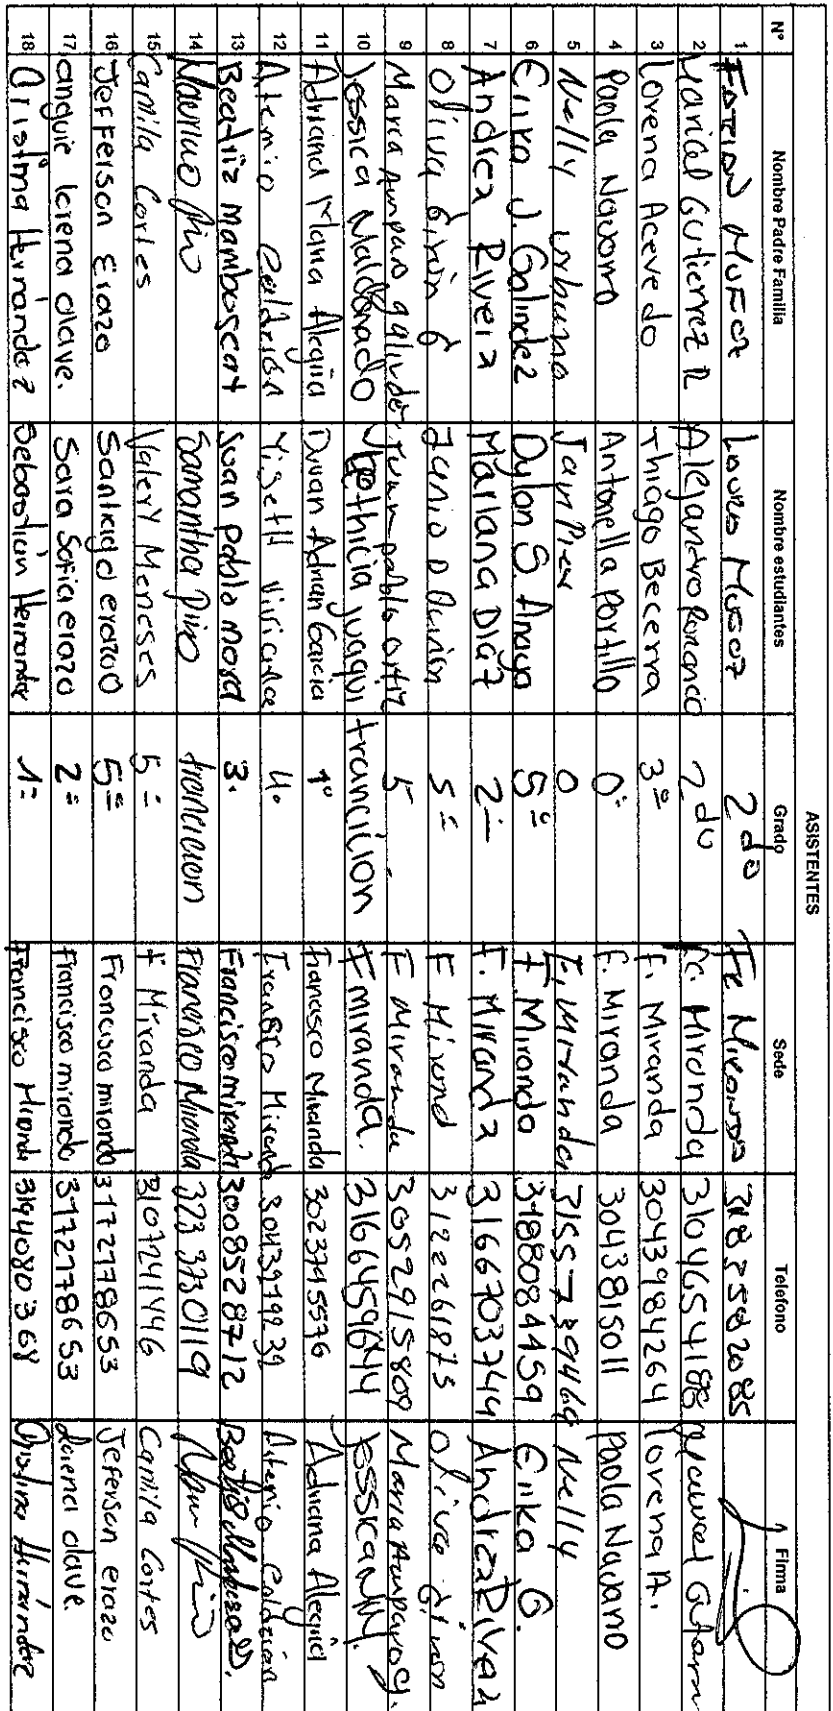 ASISTENTES
N° Nombre Padre Familia Nombre estudiantes Grado Sede Telefono Firma
1 Fabian Muñoz Muñoz 2do Fc Miranda
2 Maricel Gutierrez R Alejandro 2do Fc. Miranda 3104654188
3 Lorena Acevedo Thiago Becerra 3º f. Miranda 3043984264 Lorena A.
4 Paola Navarro Antonella Portillo 0º f. Miranda 3043815011 Paola Navarro
5 Nelly urbano 0 F. Miranda 3155739469 Nelly
6 Erika J. Galindez Dylan S. Anaya 5º F Miranda 3188084459 Erika G.
7 Andrea Rivera Mariana Diaz 2= F. Miranda 3166703744 Andrea Rivera
8 Oliva Girón G Junio D 5= F Mirand 3122261875 Oliva Giron
9 Maria Amparo galindez Juan pablo ortiz 5 F Miranda 3052915809 Maria Amparo G.
10 Jessica Maldonado juaqui trancicion F miranda. 3166459644 Jessica M.
11 Adriana Maria Alegria Duvan Adrian Garcia 1º francisco Miranda 3023745576 Adriana Alegria
12 Artemio Calderón Yiseth Viviana 4. Francisco Miranda 3043979239 Artemio Calderón
13 Beatriz Mamboscat Juan pablo mora 3. Francisco miranda 3008528712
14 Samantha Pino trancicion Francisco Miranda 323 3730119
15 Camila Cortes Valery Meneses 5= F Miranda 3107241446 Camila Cortes
16 Jefferson Erazo Santiago erazo 5= Francisco miranda 3172178653 Jeferson erazo
17 anguie lorena olave. Sara Sofia erazo 2= francisco miranda 3172178653 Lorena olave.
18 Cristina Hernández Sebastián Hernandez 1= Francisco Miranda 3194080368 Cristina Hernández